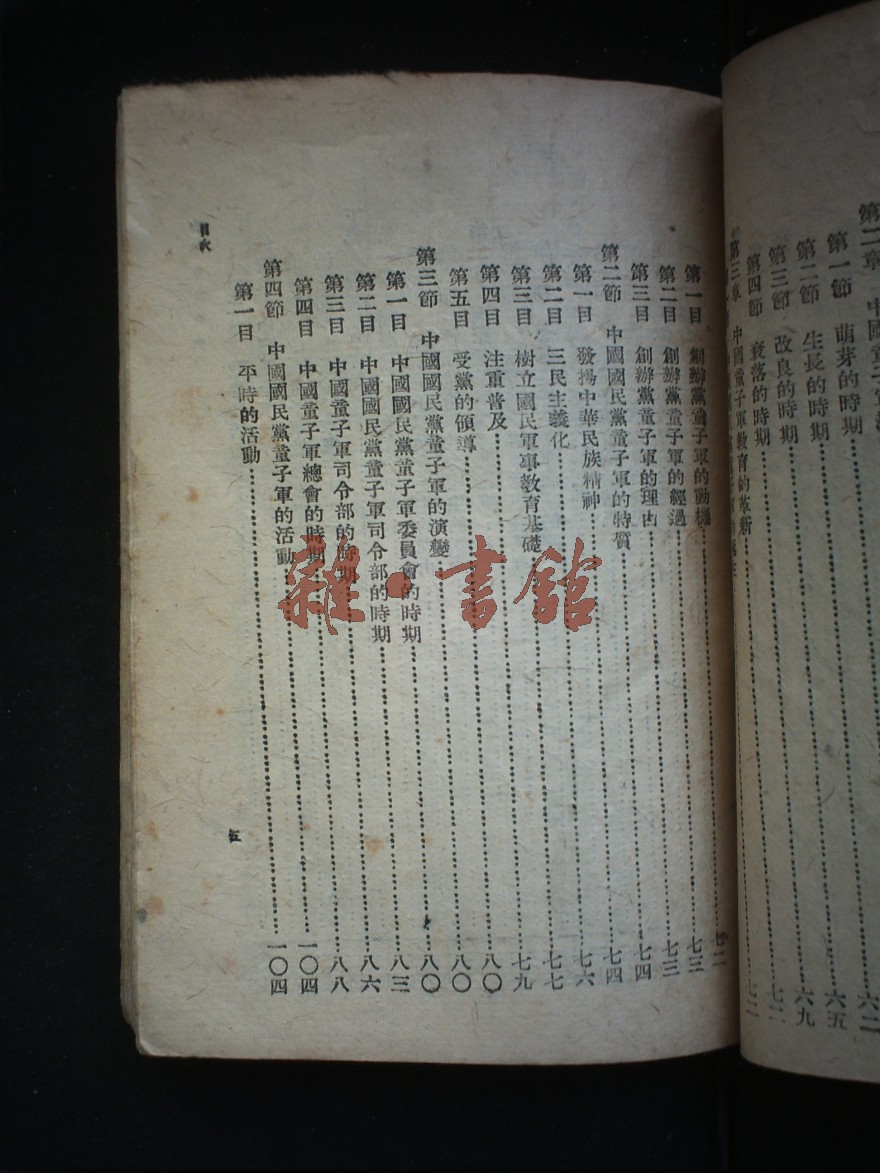 第二章 中國童子軍
第一節 萌芽的時期……六二
第二節 生長的時期……六五
第三節 改良的時期……六九
第四節 衰落的時期……七一
第三章 中國童子軍教育的革新……七二
第一目 創辦黨童子軍的動機……七二
第二目 創辦黨童子軍的經過……七三
第三目 創辦黨童子軍的理由……七三
第二節 中國國民黨童子軍的特質……七四
第一目 發揚中華民族精神……七四
第二目 三民主義化……七六
第三目 樹立國民軍事教育基礎……七七
第四目 注重普及……七九
第五目 受黨的領導……八〇
第三節 中國國民黨童子軍的演變……八〇
第一目 中國國民黨童子軍委員會的時期……八〇
第二目 中國國民黨童子軍司令部的時期……八三
第三目 中國童子軍司令部的時期……八六
第四目 中國童子軍總會的時期……八八
第四節 中國國民黨童子軍的活動……一〇四
第一目 平時的活動……一〇四
目次
五
雜·書館